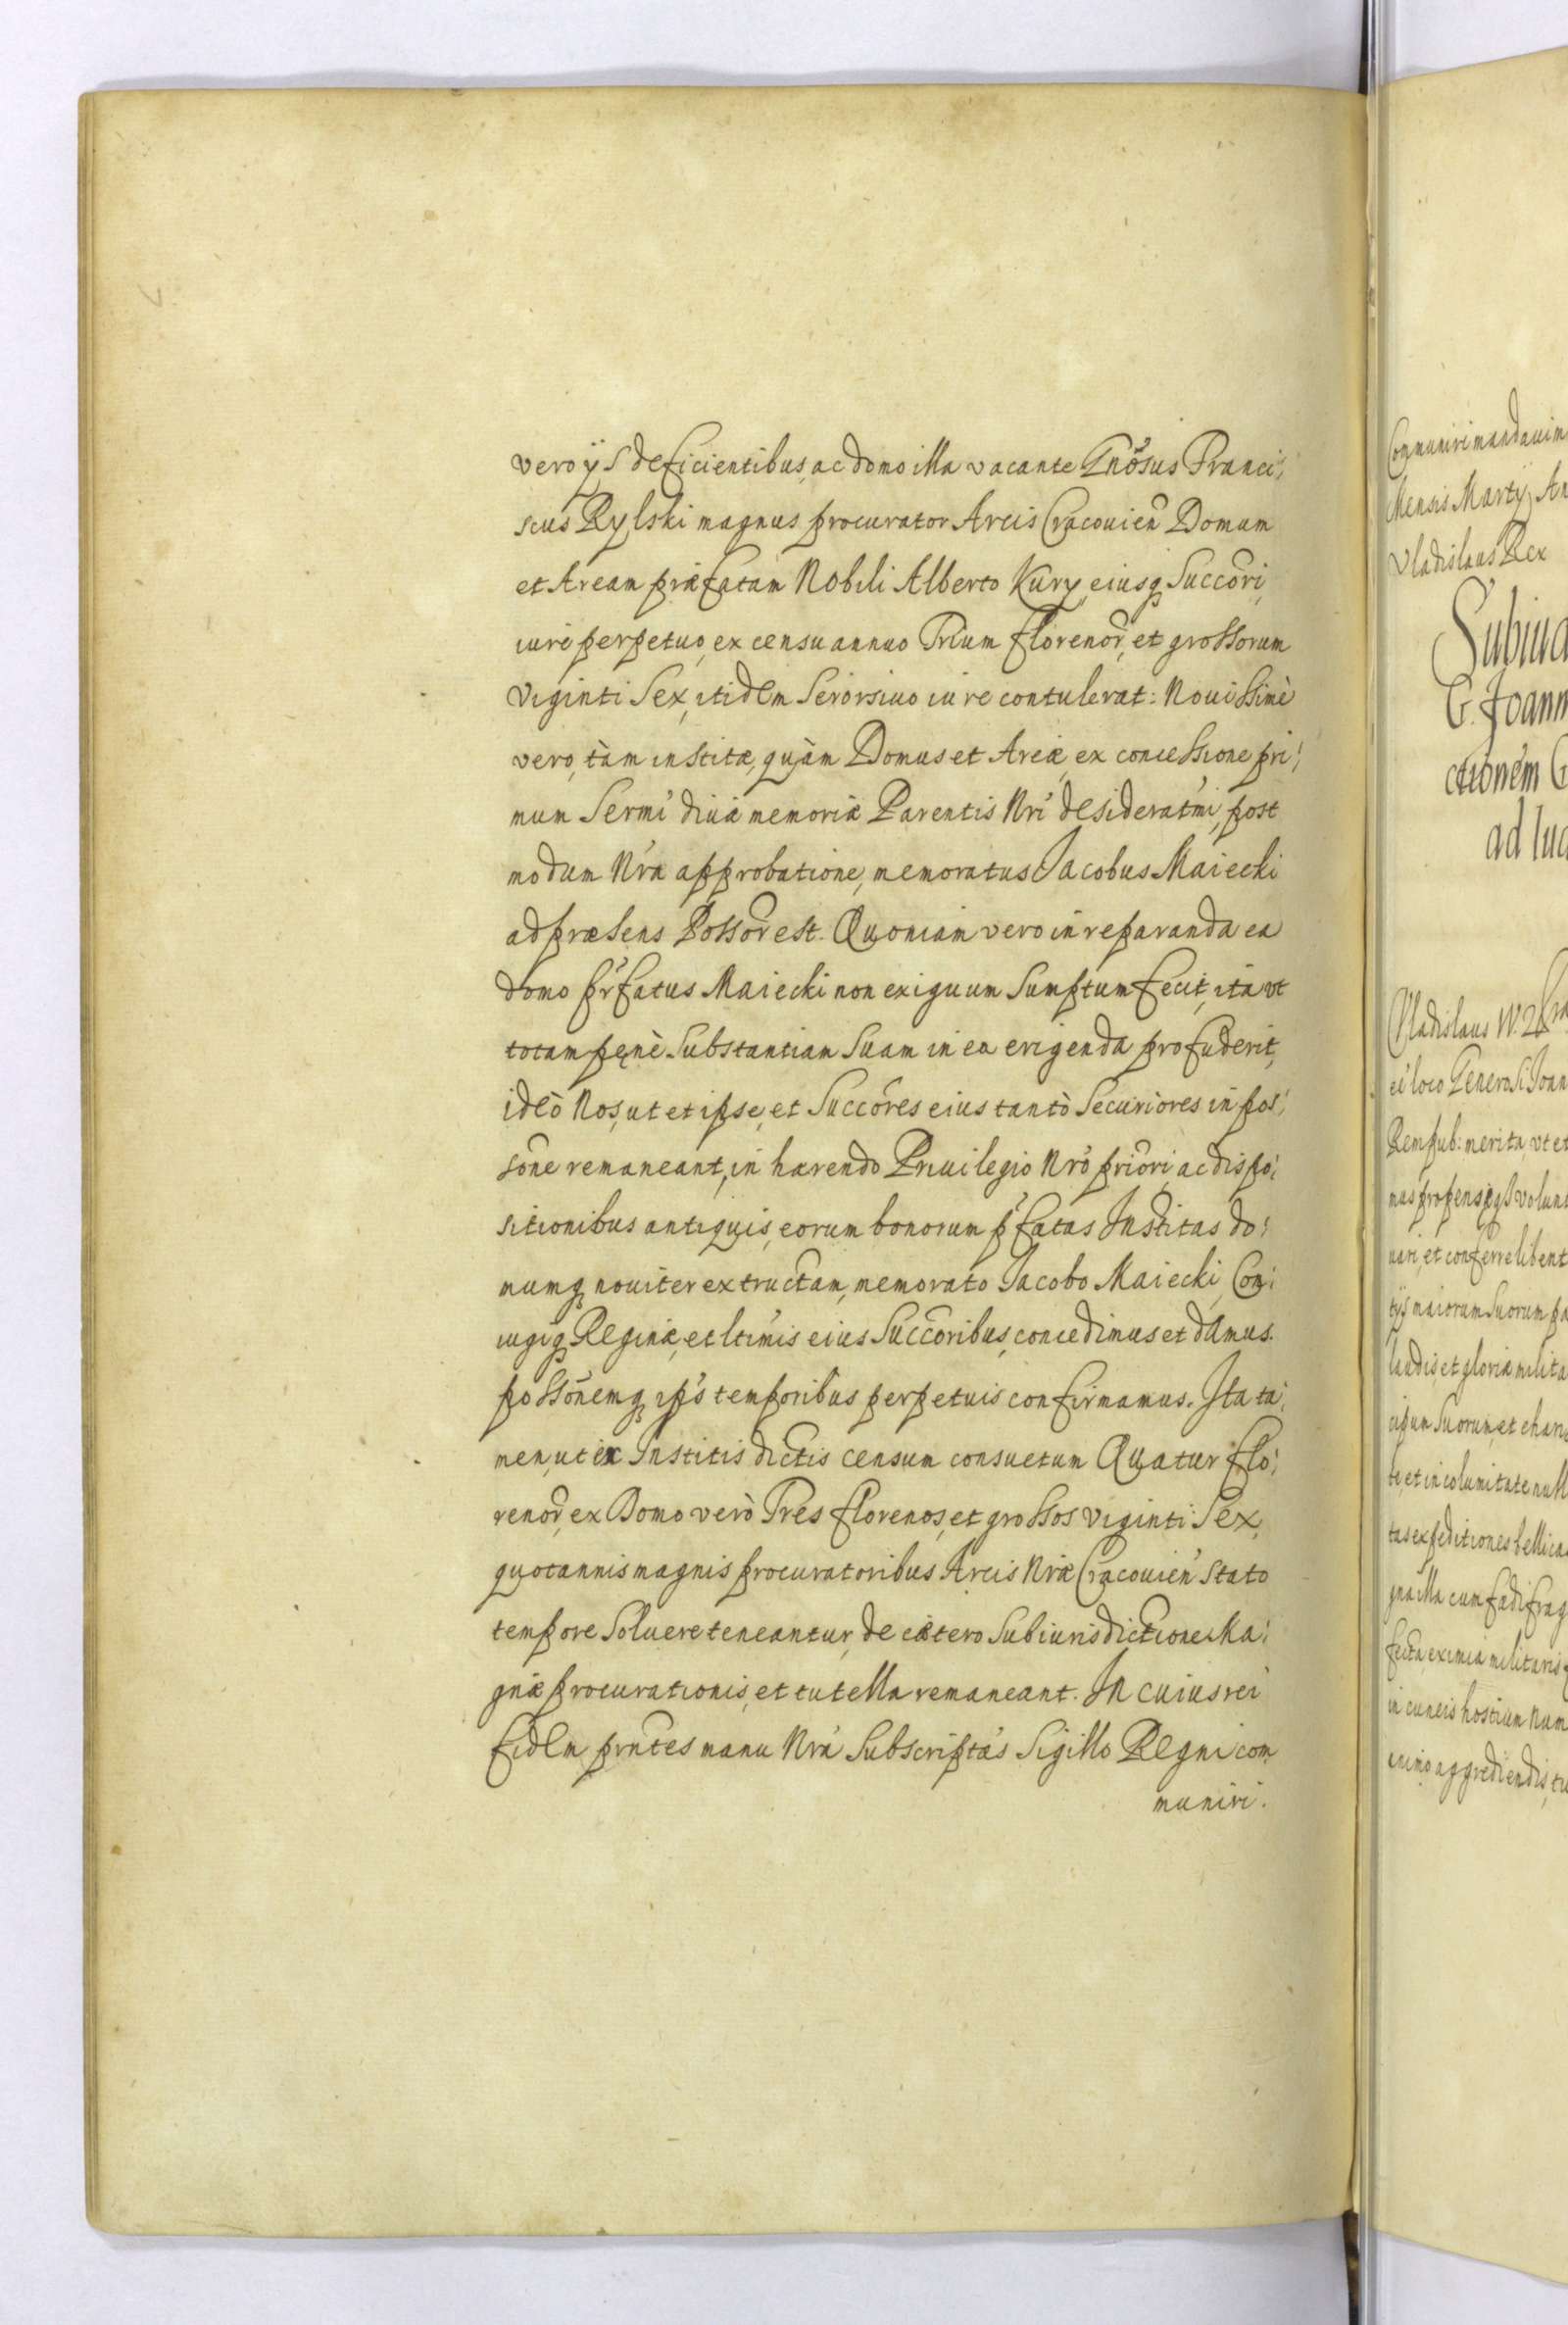 vero ijs deficientibus, ac domo illa vacante Gnõsus Franci:
scus Rylski magnus procurator Arcis Cracovien̄ Domum
et Aream præfatam Nobili Alberto Kury eiusq Succōri,
iure perpetuo, ex censu annuo Trium florenor̄, et grossorum
viginti Sex, itidem Serorsivo iure contulerat: Novissimè
vero, tàm institæ, quàm Domus et Areæ, ex concessione pri:
mum Sermi divæ memoriæ Parentis Nri desideratmi, post
modum Nra approbatione, memoratus Jacobus Maiecki
ad præsens Possor̄ est. Quoniam vero in reparanda ea
domo pr̃fatus Maiecki non exiguum Sumptum fecit, ita vt
totam penè Substantiam Suam in ea erigenda profuderit,
ideò Nos, ut et ipse, et Succōres eius tantò Securiores in pos:
sōne remaneant, in hærendo Privilegio Nrō priōri, ac dispo:
sitionibus antiquis, eorum bonorum p̃fatas Institas do:
mumq noviter extructam, memorato Jacobo Maiecki, Con:
iugiq Reginæ, et ltimis eius Succōribus, concedimus et damus.
possōnemq ip̄s temporibus perpetuis confirmamus. Ita ta:
men, ut ex Institis dictis censum consuetum Quatur flo:
renor̄, ex Domo verò Tres florenos, et grossos viginti Sex,
quotannis magnis procuratoribus Arcis Nræ Cracovien̄ stato
tempore Solvere teneantur, de cætero Sub iurisdictione Ma:
gnæ procurationis, et tutella remaneant. In cuius rei
fidem prn̄tes manu Nrā Subscriptas Sigillo Regni com
muniri.
Communiri mandavim
Mensis Martij, An
Vladislaus Rex
Subiu
G. Joann
ctionem G
ad lu
Vladislaus IV.
ei loco Generosi Joan
Rempub: merita, vt et
uari, et conferre libent
tijs maiorum Suorum pa
laudis, et gloriæ milita
et incolumitate null
tas expeditiones bellica
gna illa cum fædifrag
fecta, eximia militaris
in cuneis hostium num
animo aggrediendis, tu